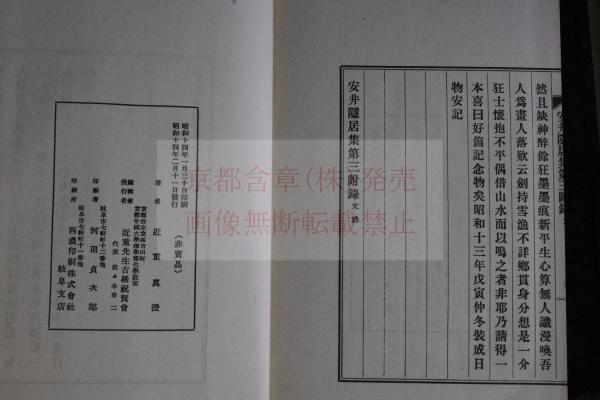 然且缺神醉餘狂墨墨痕新平生心算無人識漫喚吾
人爲畫人落欵云劍持雪漁不詳鄉貫身分想是一介
狂士懷抱不平偶借山水而以鳴之者非耶乃請得一
本喜曰好箇記念物矣昭和十三年戊寅仲冬裝成日
物安記
安井隱居集第三附錄 文 終
安井隱居集第三附錄
昭和十四年一月三十日印刷
昭和十四年二月十一日發行
(非賣品)
著者 近重眞澄
京都市左京區吉田町
京都帝國大學理學部化學敎室
編輯兼發行者 近重先生古稀祝賀會
代表 佐々木申二
岐阜市七軒町十二番地
印刷者 河田貞次郎
岐阜市七軒町十二番地
印刷所 西濃印刷株式會社
岐阜支店
京都含章(株)発売
画像無断転載禁止